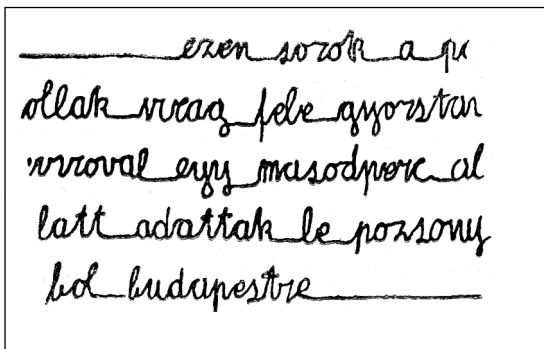 ezen sorok a po
ollak virag fele gyorstav
viroval egy masodperc al
latt adattak le pozsony
bol budapestre